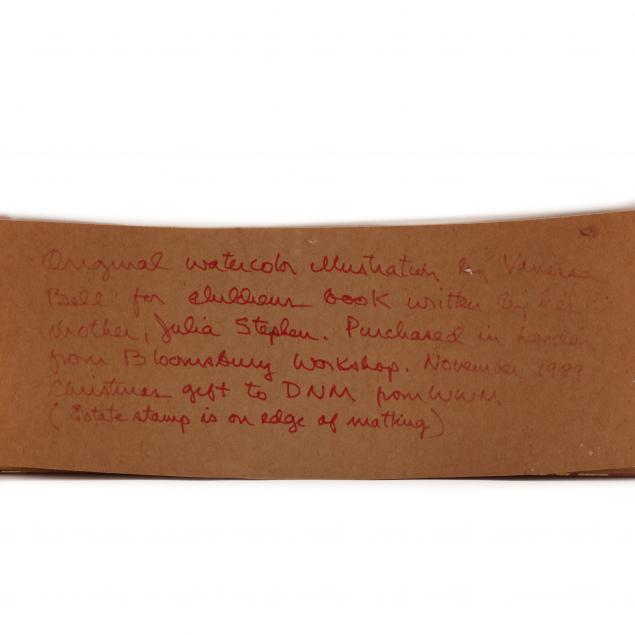 Original watercolor illustration by Vanessa
Bell for childrens book written by her
mother, Julia Stephen. Purchased in London
from Bloomsbury Workshop. November 1989
Christmas gift to DNM from WWM
(Estate stamp is on edge of matting)